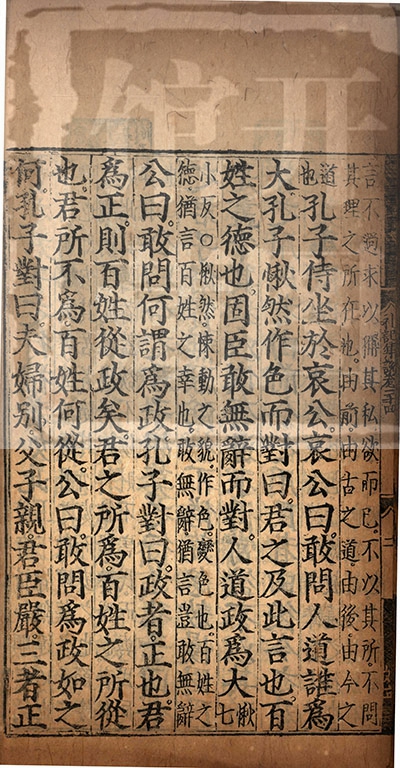 言不過求以稱其私欲而已不以其所不問
其理之所在也由前由古之道由後由今之
道也孔子侍坐於哀公。哀公曰。敢問人道誰爲
大。孔子愀然作色而對曰。君之及此言也。百
姓之德也。固臣敢無辭而對。人道政爲大。愀七
小反○愀然悚動之貌。作色變色也。百姓之
德猶言百姓之幸也。敢無辭猶言豈敢無辭
公曰。敢問何謂爲政。孔子對曰。政者。正也。君
爲正。則百姓從政矣。君之所爲。百姓之所從
也。君所不爲。百姓何從。公曰。敢問爲政如之
何。孔子對曰。夫婦別。父子親。君臣嚴。三者正